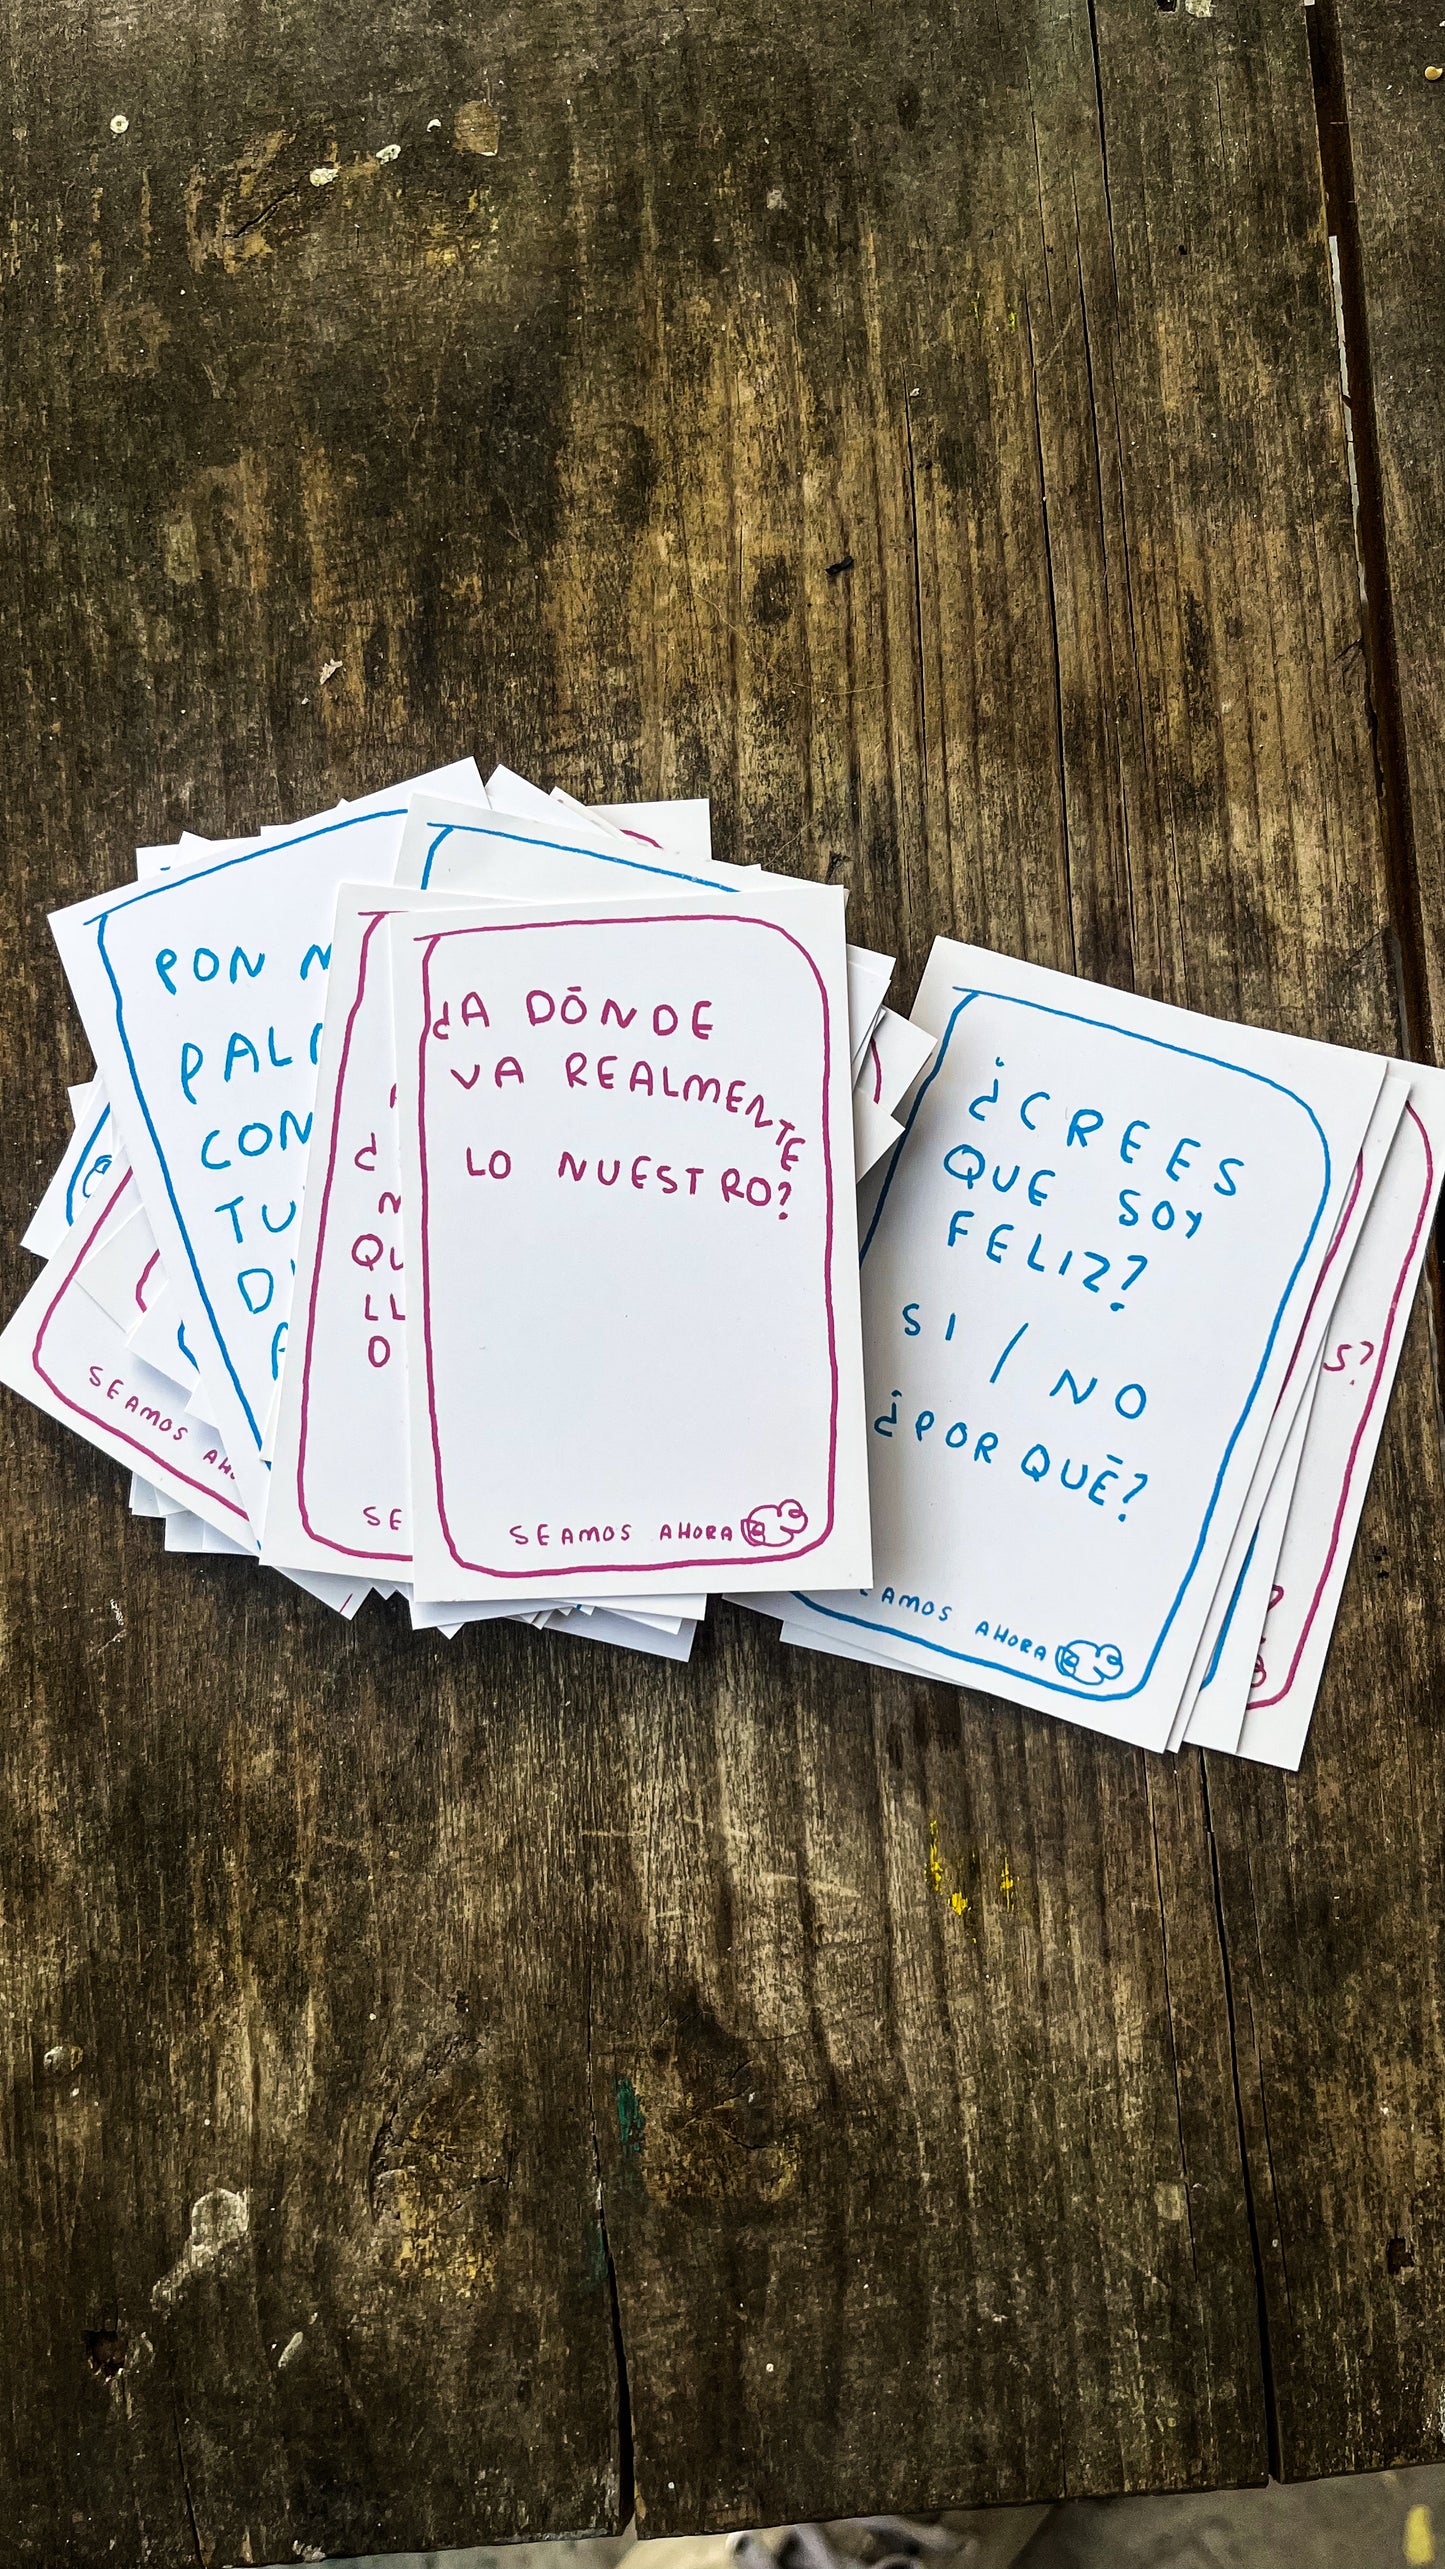 PON
PAL
CON
TU
D
SEAMOS
QU
LL
O
SE
¿A DÓNDE
VA REALMENTE
LO NUESTRO?
SEAMOS AHORA
¿CREES
QUE SOY
FELIZ?
SI / NO
¿POR QUÉ?
EAMOS AHORA
S?